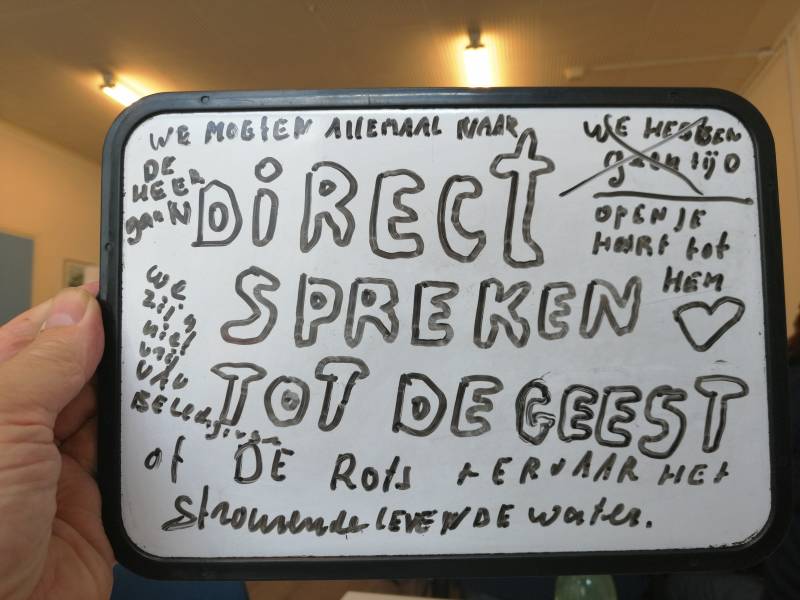 WE MOETEN ALLEMAAL NAAR
DE
HEER
gaaN
WE HEBBEN
geen tijD
OPEN JE
HART tot
HEM
DIRECt
SPREKEN
TOT DE GEEST
WE
zijn
niet
vrij
VAN
BELEdigingen
of DE Rots + ERVAAR HET
Stromende LEVENDE water.